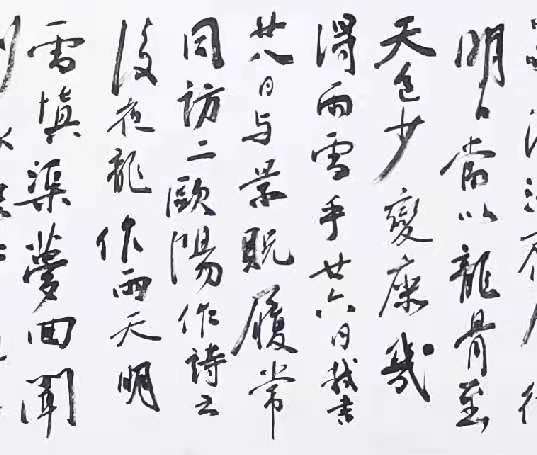 明日當以龍骨至
天色少變庶幾
得雨雪乎廿六日軾書
廿八日与景貺履常
同訪二歐陽作詩云
後夜龍作雨天明
雪填渠夢回聞